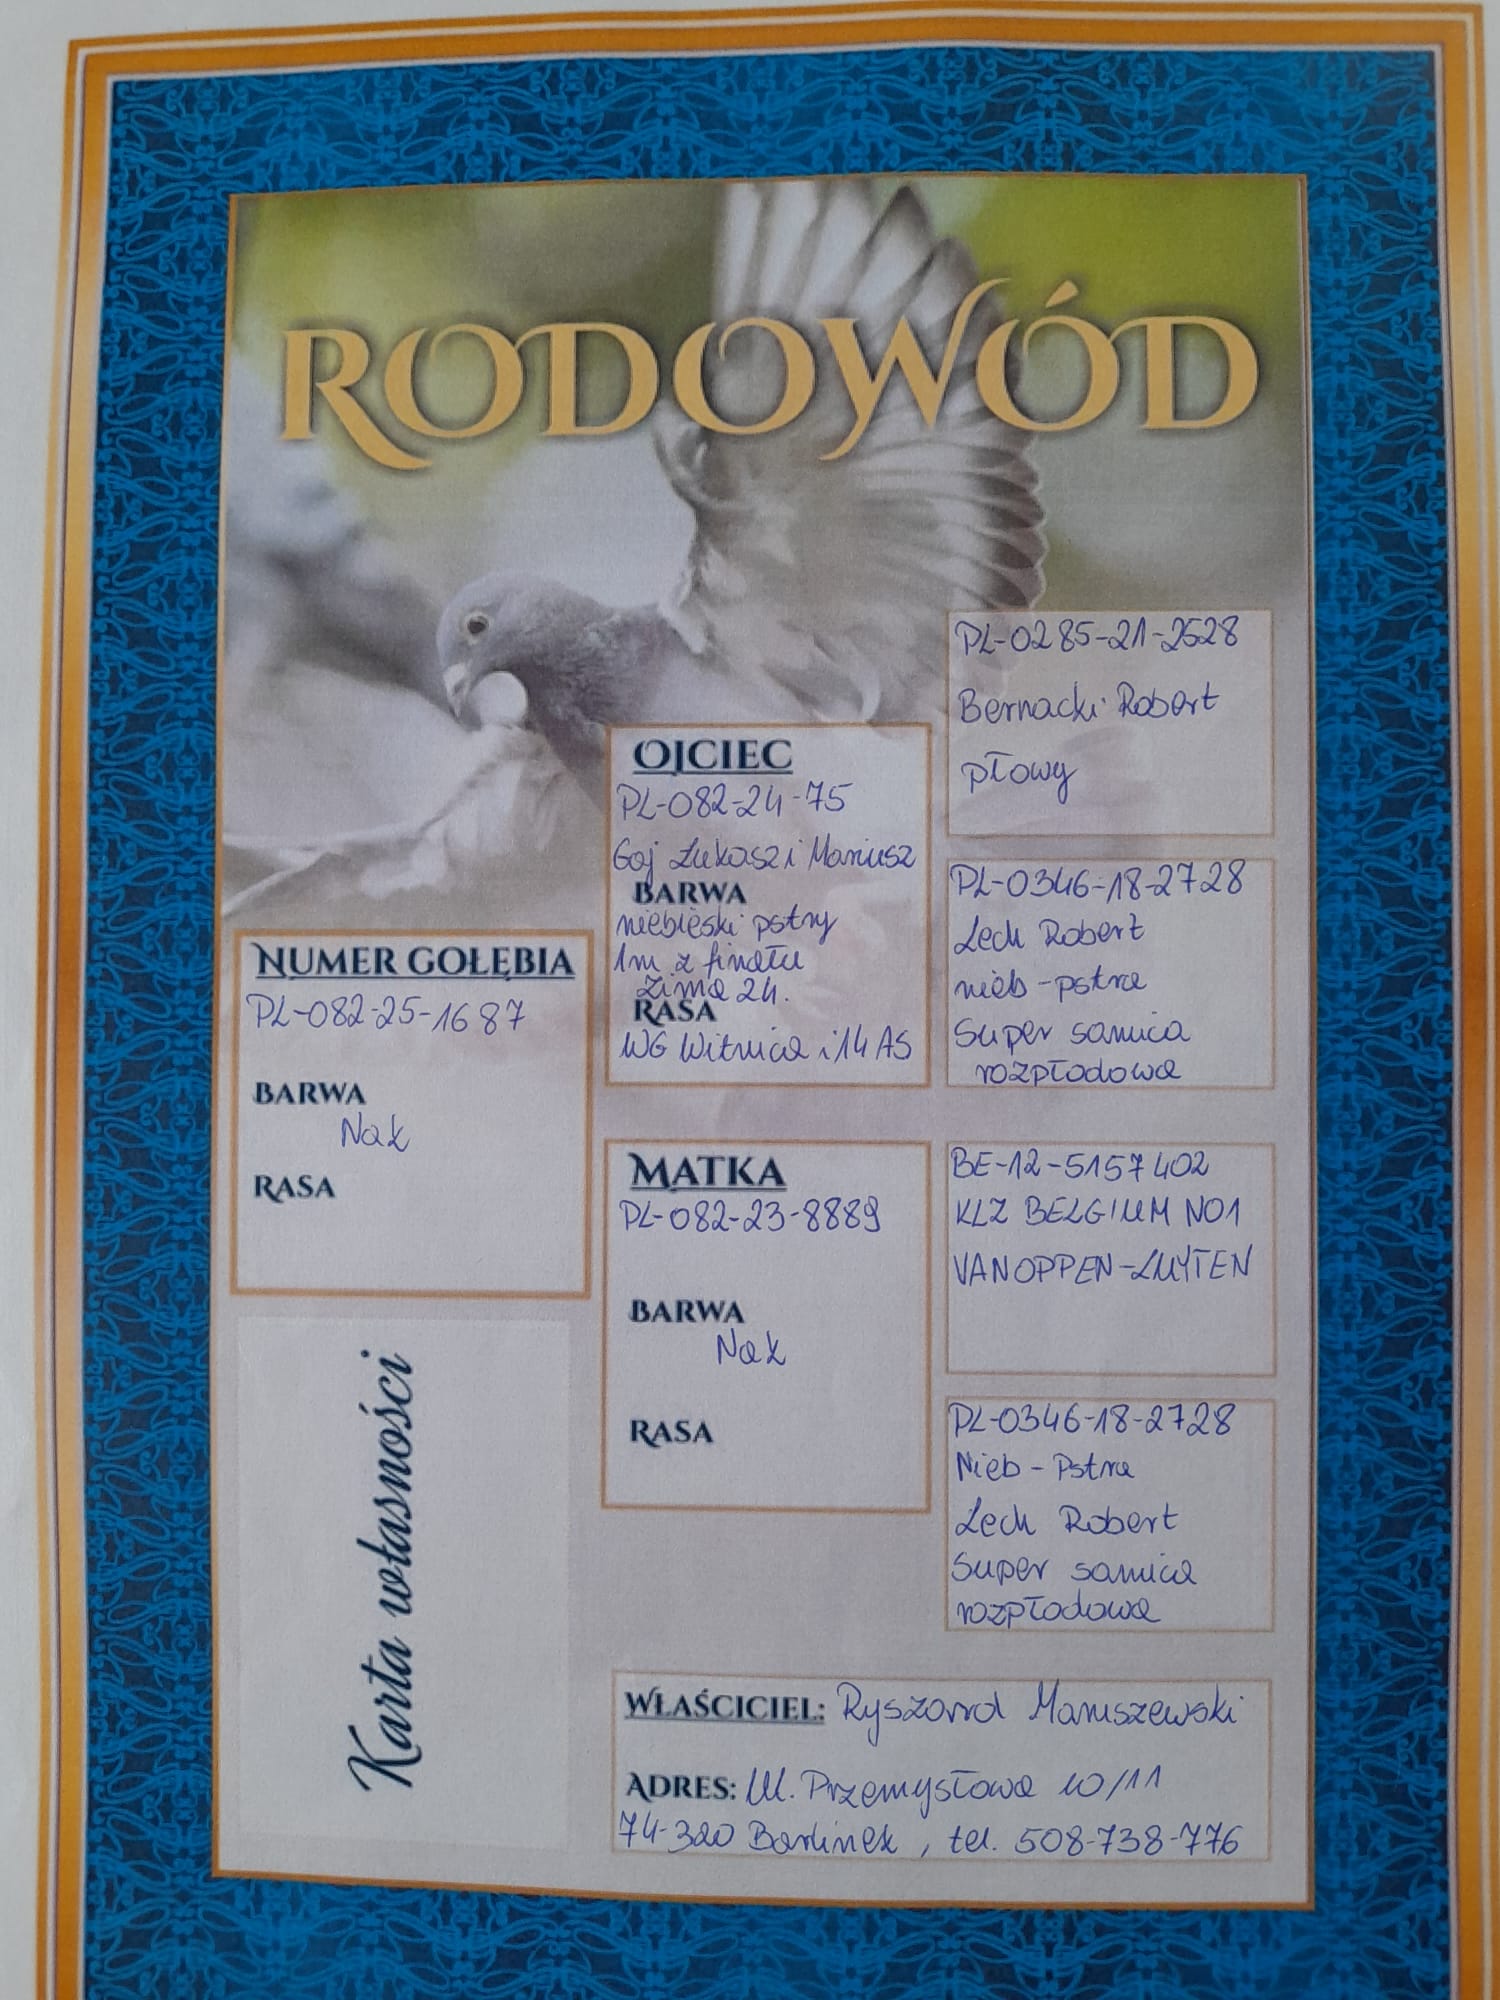 RODOWÓD
NUMER GOŁĘBIA
PL-082-25-1687
BARWA
Nak
RASA
Karta własności
OJCIEC
PL-082-24-75
Goj Łukasz i Mariusz
BARWA
niebieski pstry
1m z finału
Zima 24.
RASA
WG Witnica i 14 AS
MATKA
PL-082-23-8889
BARWA
Nak
RASA
PL-0285-21-2528
Bernacki Robert
płowy
PL-0346-18-2728
Lech Robert
nieb-pstra
Super samica
rozpłodowa
BE-12-5157402
KLZ BELGIUM NO1
VANOPPEN-LUYTEN
PL-0346-18-2728
Nieb-Pstra
Lech Robert
Super samica
rozpłodowa
WŁAŚCICIEL: Ryszard Maruszewski
ADRES: Ul. Przemysłowa 10/11
74-320 Barlinek, tel. 508-738-776